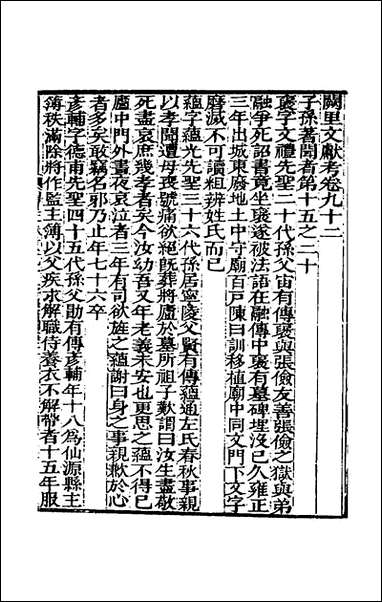 闕里文獻考卷九十二
子孫著聞者第十五之二十
褒字文禮先聖二十代孫父宙有傳褒與張儉友善張儉之獄與弟
融爭死詔書竟坐褒遂被法語在融傳中褒有墓碑埋沒已久雍正
三年出城東廢地土中守廟百戶陳曰訓移植廟中同文門下文字
磨滅不可讀粗辨姓氏而已
蘊字蘊光先聖三十六代孫居寧陵父賢有傳蘊通左氏春秋事親
以孝聞遭母喪號痛欲絕旣葬將廬於墓所祖子歎謂曰汝生盡敬
死盡哀庶幾孝者矣今汝幼吾又年老義未安也更思之蘊不得已
廬中門外晝夜哀泣者三年有司欲旌之蘊謝曰身之事親歉於心
者多矣敢竊名邪乃止年七十六卒
彥輔字德甫先聖四十五代孫父勖有傳彥輔年十八爲仙源縣主
簿秩滿除將作監主簿以父疾求解職侍養衣不解帶者十五年服